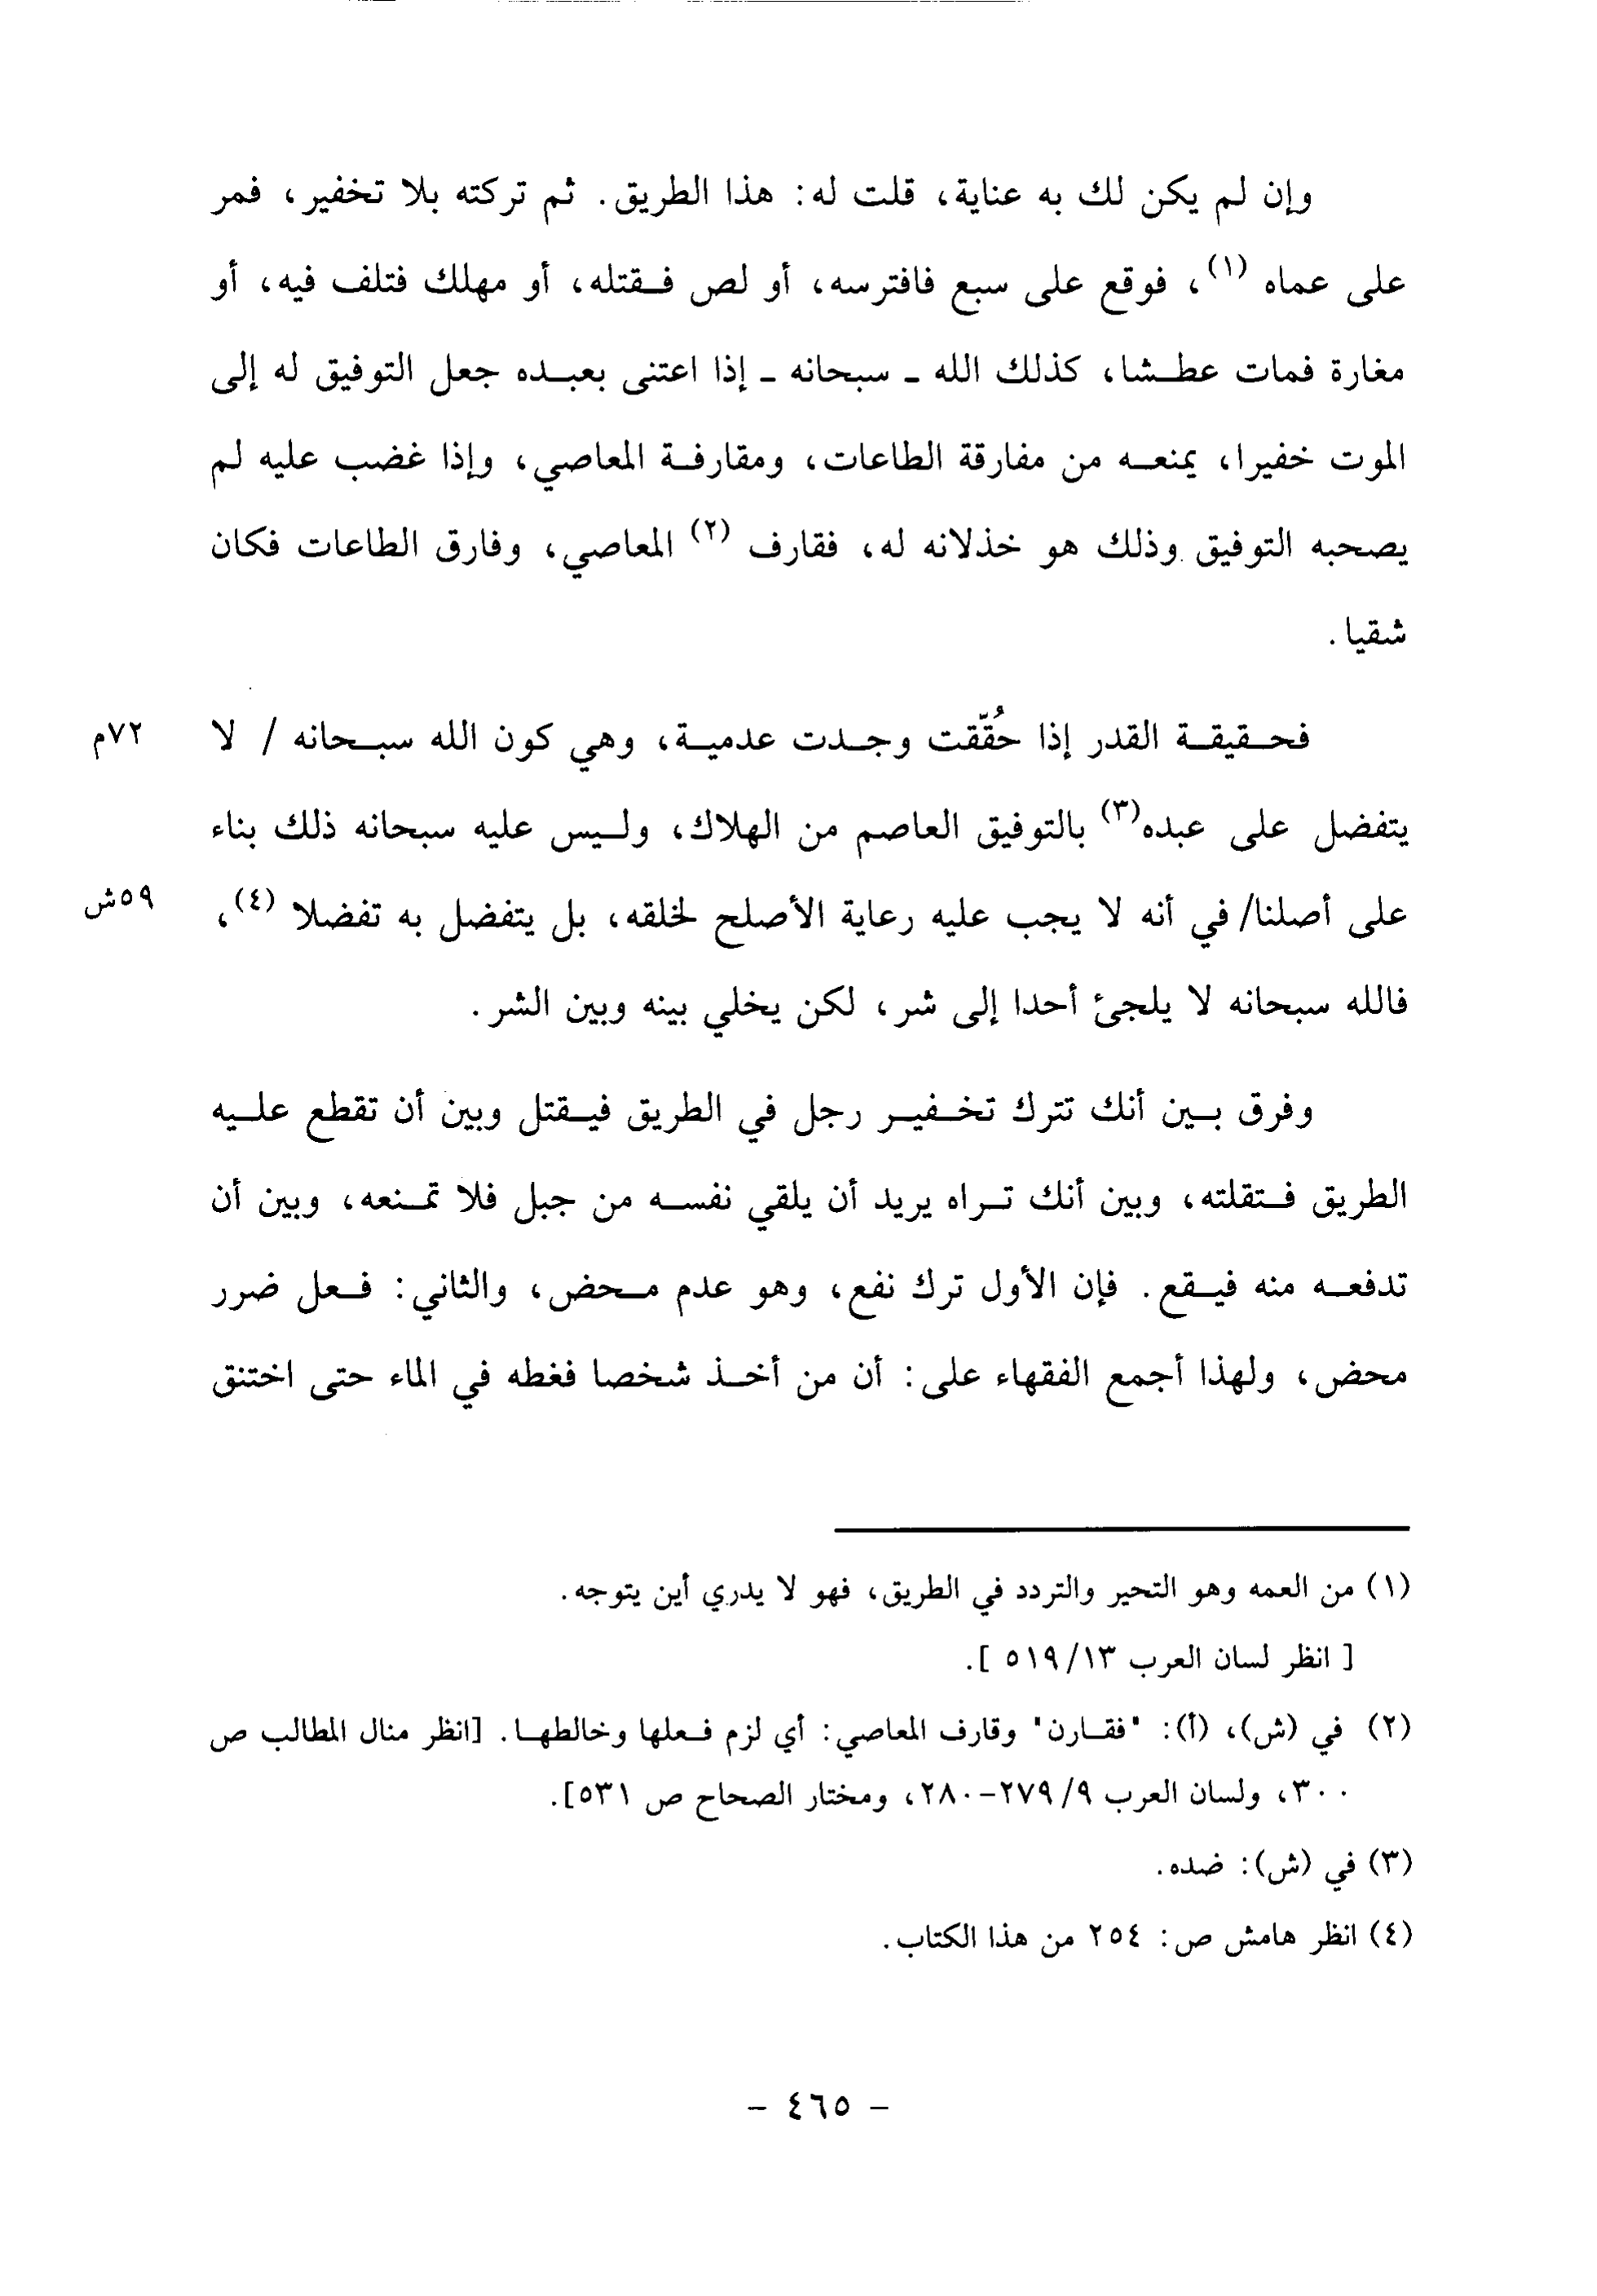 وإن لم يكن لك به عناية، قلت له: هذا الطريق. ثم تركته بلا تخفير، فمر
على عماه (١)، فوقع على سبع فافترسه، أو لص فقتله، أو مهلك فتلف فيه، أو
مغارة فمات عطشا، كذلك الله - سبحانه - إذا اعتنى بعبده جعل التوفيق له إلى
الموت خفيرا، يمنعه من مفارقة الطاعات، ومقارفة المعاصي، وإذا غضب عليه لم
يصحبه التوفيق وذلك هو خذلانه له، فقارف (٢) المعاصي، وفارق الطاعات فكان
شقيا.
فحقيقة القدر إذا حُقّقت وجدت عدمية، وهي كون الله سبحانه / لا ٧٢م
يتفضل على عبده(٣) بالتوفيق العاصم من الهلاك، وليس عليه سبحانه ذلك بناء
على أصلنا/ في أنه لا يجب عليه رعاية الأصلح لخلقه، بل يتفضل به تفضلا (٤)، ٥٩ش
فالله سبحانه لا يلجئ أحدا إلى شر، لكن يخلي بينه وبين الشر.
وفرق بين أنك تترك تخفير رجل في الطريق فيقتل وبين أن تقطع عليه
الطريق فتقلته، وبين أنك تراه يريد أن يلقي نفسه من جبل فلا تمنعه، وبين أن
تدفعه منه فيقع. فإن الأول ترك نفع، وهو عدم محض، والثاني: فعل ضرر
محض، ولهذا أجمع الفقهاء على: أن من أخذ شخصا فغطه في الماء حتى اختنق
(١) من العمه وهو التحير والتردد في الطريق، فهو لا يدري أين يتوجه.
[ انظر لسان العرب ١٣/ ٥١٩ ].
(٢) في (ش)، (أ): "فقارن" وقارف المعاصي: أي لزم فعلها وخالطها. [انظر منال المطالب ص
٣٠٠، ولسان العرب ٩/ ٢٧٩-٢٨٠، ومختار الصحاح ص ٥٣١].
(٣) في (ش): ضده.
(٤) انظر هامش ص: ٢٥٤ من هذا الكتاب.
- ٤٦٥ -